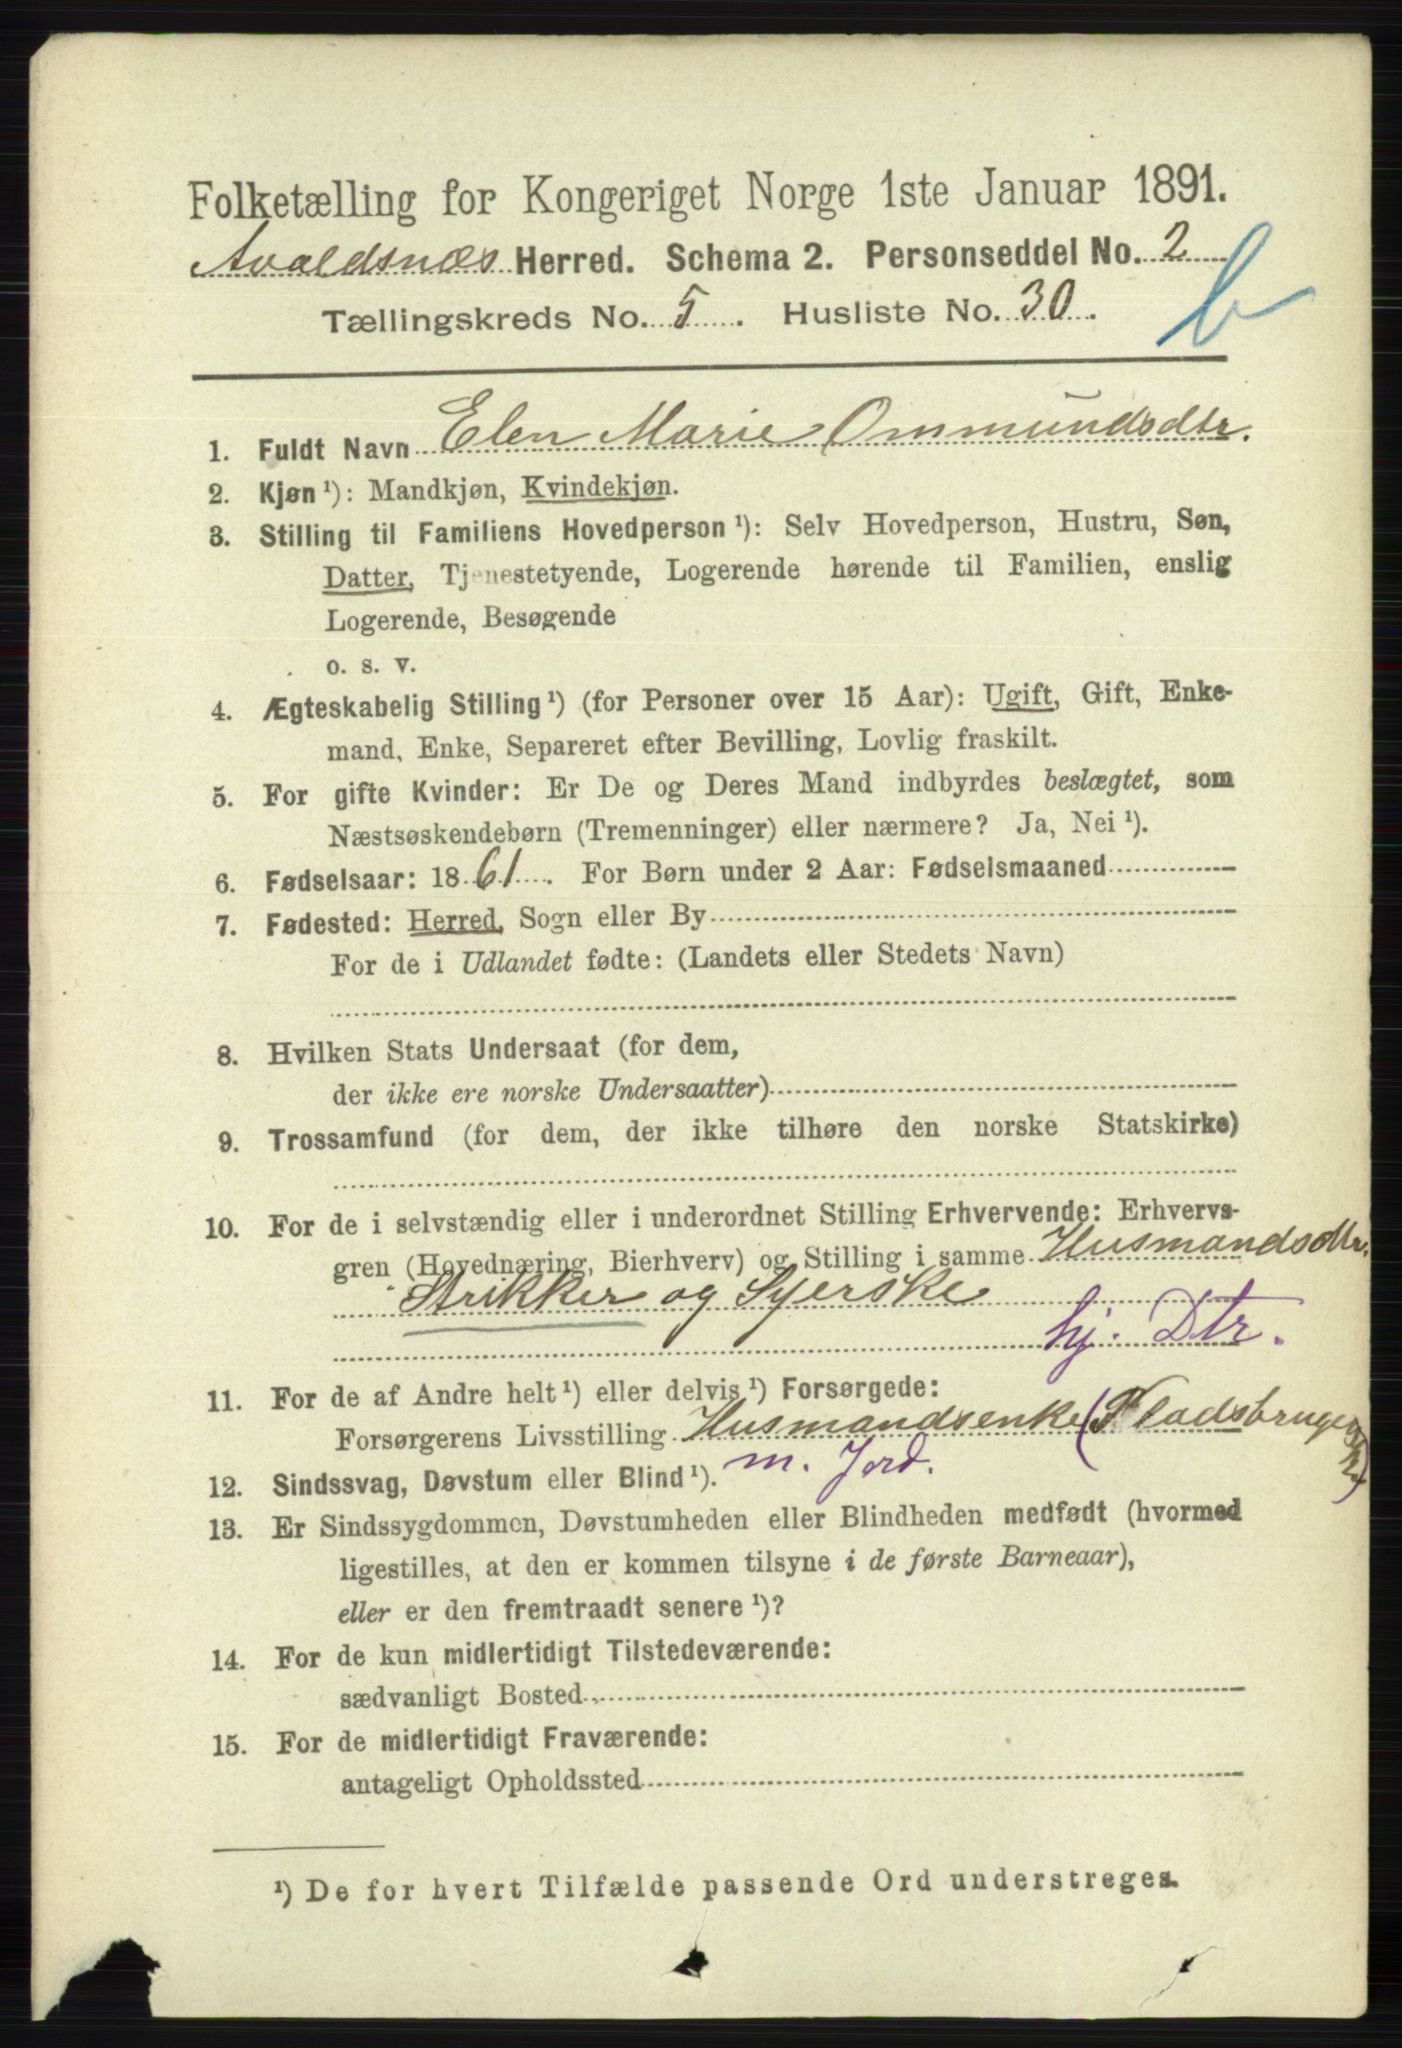 Folketælling for Kongeriget Norge 1ste Januar 1891.
Avaldsnæs Herred. Schema 2. Personseddel No. 2
Tællingskreds No. 5. Husliste No. 30.
b
1. Fuldt Navn Elen Marie Ommundsdtr.
2. Kjøn ¹): Mandkjøn, Kvindekjøn.
3. Stilling til Familiens Hovedperson ¹): Selv Hovedperson, Hustru, Søn,
Datter, Tjenestetyende, Logerende hørende til Familien, enslig
Logerende, Besøgende
o. s. v.
4. Ægteskabelig Stilling ¹) (for Personer over 15 Aar): Ugift, Gift, Enke-
mand, Enke, Separeret efter Bevilling, Lovlig fraskilt.
5. For gifte Kvinder: Er De og Deres Mand indbyrdes beslægtet, som
Næstsøskendebørn (Tremenninger) eller nærmere? Ja, Nei ¹).
6. Fødselsaar: 1861. For Børn under 2 Aar: Fødselsmaaned
7. Fødested: Herred, Sogn eller By
For de i Udlandet fødte: (Landets eller Stedets Navn)
8. Hvilken Stats Undersaat (for dem,
der ikke ere norske Undersaatter)
9. Trossamfund (for dem, der ikke tilhøre den norske Statskirke)
10. For de i selvstændig eller i underordnet Stilling Erhvervende: Erhvervs-
gren (Hovednæring, Bierhverv) og Stilling i samme Husmandsdtr.
Strikker og Syerske
hj. Dtr.
11. For de af Andre helt ¹) eller delvis ¹) Forsørgede:
Forsørgerens Livsstilling Husmandsenke (Pladsbruger
m. Jord.
12. Sindssvag, Døvstum eller Blind ¹).
13. Er Sindssygdommen, Døvstumheden eller Blindheden medfødt (hvormed
ligestilles, at den er kommen tilsyne i de første Barneaar),
eller er den fremtraadt senere ¹)?
14. For de kun midlertidigt Tilstedeværende:
sædvanligt Bosted
15. For de midlertidigt Fraværende:
antageligt Opholdssted
¹) De for hvert Tilfælde passende Ord understreges.